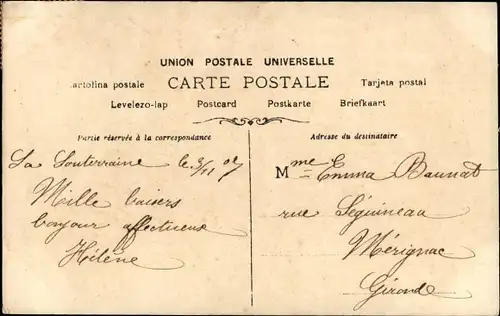 UNION POSTALE UNIVERSELLE
cartolina postale CARTE POSTALE Tarjeta postal
Levelezo-lap Postcard Postkarte Briefkaart
Partie réservée à la correspondance
Adresse du destinataire
La Souterraine le 3/11 07
Mille baisers
bonjour affectueux
Hélène
Mme Emma Baunat
rue Séguineau
Mérignac
Gironde